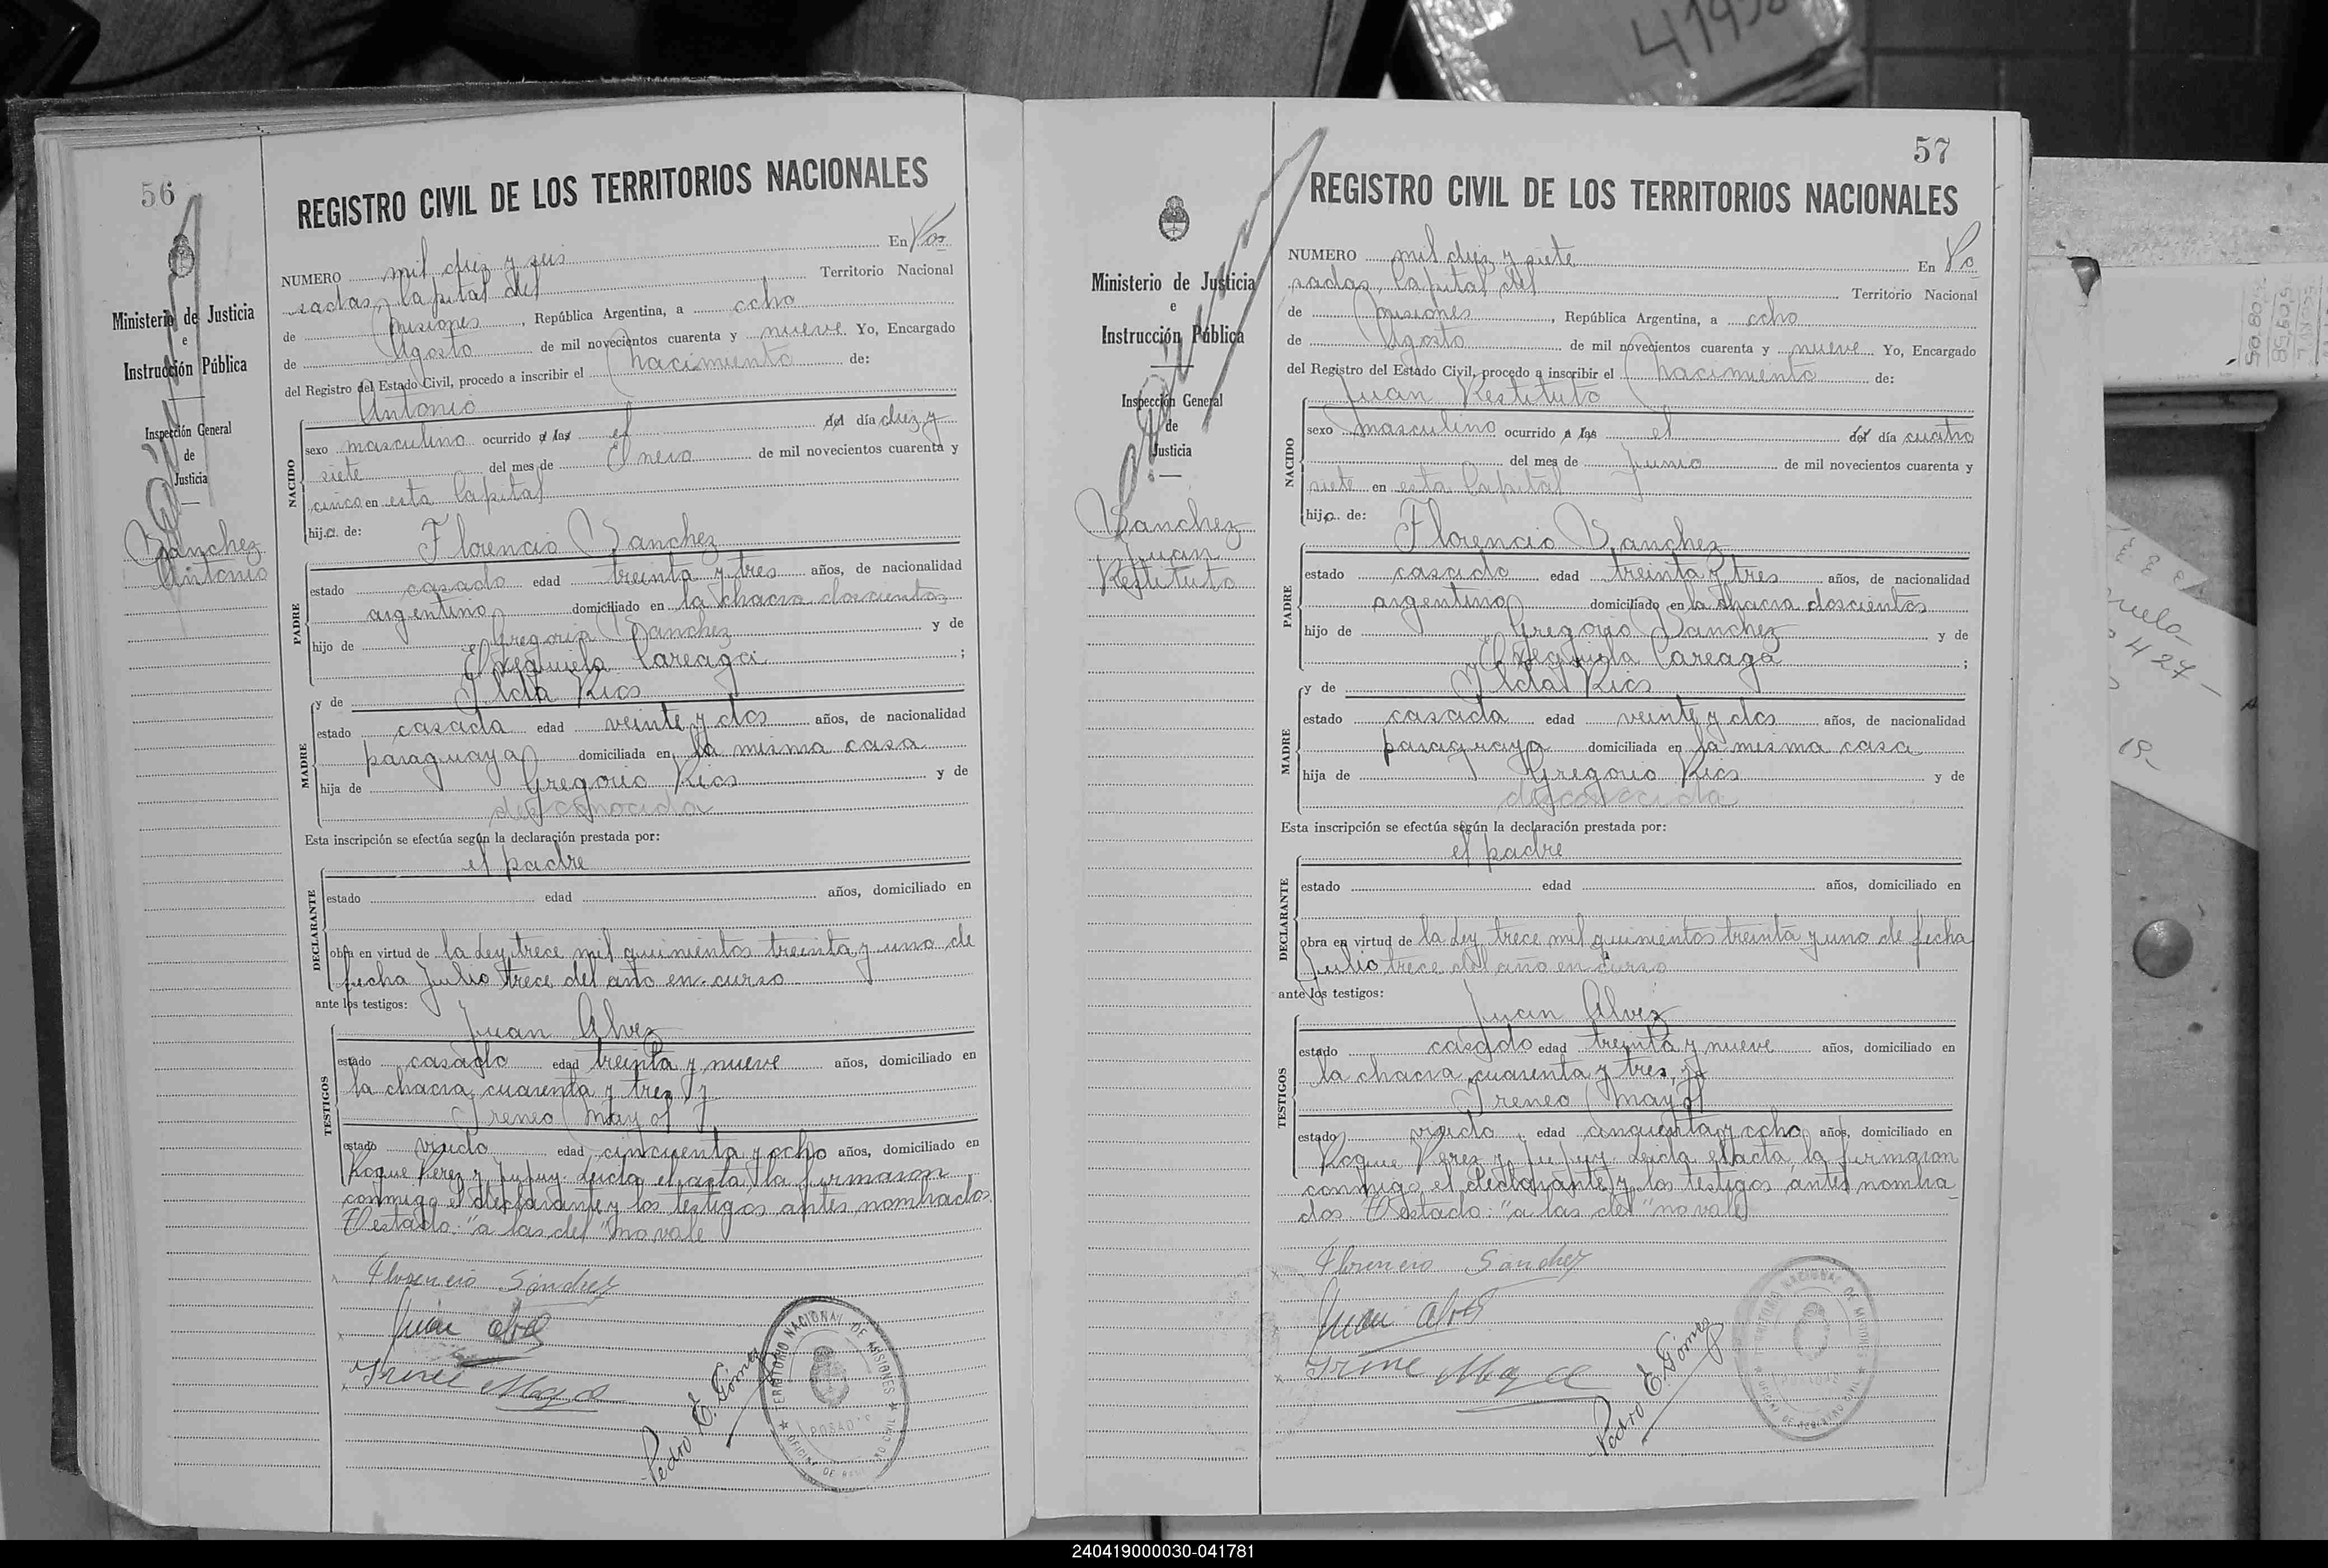 41958
56
Ministerio de Justicia
e
Instrucción Pública
Inspección General
de
Justicia
Sanchez
Antonio
REGISTRO CIVIL DE LOS TERRITORIOS NACIONALES
NUMERO mil diez y seis En Po
sadas, Capital del Territorio Nacional
de Misiones, República Argentina, a ocho
de Agosto de mil novecientos cuarenta y nueve Yo, Encargado
del Registro del Estado Civil, procedo a inscribir el Nacimiento de:
Antonio
NACIDO
sexo masculino ocurrido a las el del día diez y
siete del mes de Enero de mil novecientos cuarenta y
cinco en esta Capital
hijo de:
Florencio Sanchez
PADRE
estado casado edad treinta y tres años, de nacionalidad
argentino domiciliado en la chacra doscientos
hijo de Gregorio Sanchez y de
Exequiela Careaga ;
y de Ilda Rios
MADRE
estado casada edad veinte y dos años, de nacionalidad
paraguaya domiciliada en la misma casa
hija de Gregorio Rios y de
desconocida
Esta inscripción se efectúa según la declaración prestada por:
el padre
DECLARANTE
estado edad años, domiciliado en
obra en virtud de la Ley trece mil quinientos treinta y uno de
fecha Julio trece del año en curso
ante los testigos:
Juan Alvez
TESTIGOS
estado casado edad treinta y nueve años, domiciliado en
la chacra cuarenta y tres y
Ireneo Mayol
estado viudo edad cincuenta y ocho años, domiciliado en
Roque Perez y Jujuy. Leida el acta, la firmaron
conmigo el declarante y los testigos antes nombrados
Testado: "a las del" no vale
Florencio Sánchez
Juan
Pedro E. Gómez
TERRITORIO NACIONAL DE MISIONES
POSADAS
OFICINA DE REGISTRO CIVIL
57
Ministerio de Justicia
e
Instrucción Pública
Inspección General
de
Justicia
Sanchez
Juan
Restituto
REGISTRO CIVIL DE LOS TERRITORIOS NACIONALES
NUMERO mil diez y siete En Po
sadas, Capital del Territorio Nacional
de Misiones, República Argentina, a ocho
de Agosto de mil novecientos cuarenta y nueve Yo, Encargado
del Registro del Estado Civil, procedo a inscribir el Nacimiento de:
Juan Restituto
NACIDO
sexo masculino ocurrido a las el del día cuatro
del mes de Junio de mil novecientos cuarenta y
siete en esta Capital
hijo de:
Florencio Sanchez
PADRE
estado casado edad treinta y tres años, de nacionalidad
argentino domiciliado en la chacra doscientos
hijo de Gregorio Sanchez y de
Exequiela Careaga ;
y de Ilda Rios
MADRE
estado casada edad veinte y dos años, de nacionalidad
paraguaya domiciliada en la misma casa
hija de Gregorio Rios y de
desconocida
Esta inscripción se efectúa según la declaración prestada por:
el padre
DECLARANTE
estado edad años, domiciliado en
obra en virtud de la Ley trece mil quinientos treinta y uno de fecha
Julio trece del año en curso
ante los testigos:
Juan Alvez
TESTIGOS
estado casado edad treinta y nueve años, domiciliado en
la chacra cuarenta y tres, y
Ireneo Mayol
estado viudo edad cinquenta y ocho años, domiciliado en
Roque Perez y Jujuy. Leida el acta, la firmaron
conmigo el declarante y los testigos antes nombra
dos. Testado: "a las del" no vale
Florencio Sánchez
Juan
Pedro E. Gómez
TERRITORIO NACIONAL DE MISIONES
POSADAS
OFICINA DE REGISTRO CIVIL
427
19-
240419000030-041781